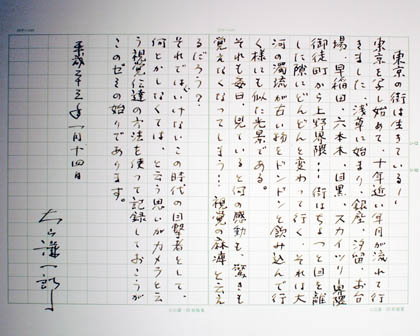 東京の街は生きている…
東京を写し始めて、十年近い年月が流れて行
きました。浅草に始まり、銀座、汐留、お台
場、早稲田、六本木、目黒、スカイツリー界隈
御徒町から上野界隈…街はちょっと目を離
した隙にどんどんと変わって行く、それは大
河の濁流が古い物をドンドンと飲み込んで行
く様にも似た光景である。
それも毎日、見ていると何の感動も、驚きも
覚えなくなってしまう…視覚の麻痺と云え
るだろう？
それではいけないこの時代の目撃者として、
何とかしなくては、と云う思いがカメラと云
う視覚伝達の方法を使って記録しておこうが
このゼミの始りであります。
平成二十三年一月十四日